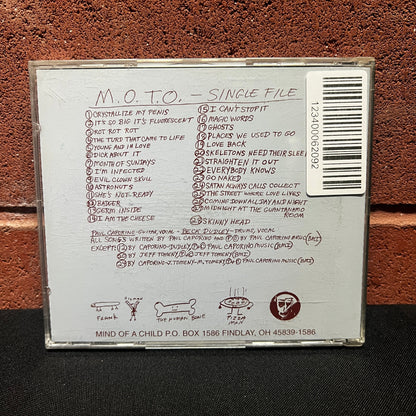 M.O.T.O. – SINGLE FILE
1 CRYSTALLIZE MY PENIS
2 IT'S SO BIG IT'S FLUORESCENT
3 ROT ROT ROT
4 THE TURD THAT CAME TO LIFE
5 YOUNG AND IN LOVE
6 DICK ABOUT IT
7 MONTH OF SUNDAYS
8 I'M INFECTED
9 EVIL CLOWN SKUL
10 ASTRONUTS
11 SHE'S NOT READY
12 BADGER
13 GERM INSIDE
14 I AM THE CHEESE
15 I CAN'T STOP IT
16 MAGIC WORDS
17 GHOSTS
18 PLACES WE USED TO GO
19 LOVE BACK
20 SKELETONS NEED THEIR SLEEP
21 STRAIGHTEN IT OUT
22 EVERYBODY KNOWS
23 GO NAKED
24 SATAN ALWAYS CALLS COLLECT
25 THE STREET WHERE LOVE LIVES
26 COMING DOWN ALL DAY AND NIGHT
27 MIDNIGHT AT THE GUANTANAMO
ROOM
28 SKINNY HEAD
PAUL CAPORINO – GUITAR, VOCAL – BECK DUDLEY – DRUMS, VOCAL
ALL SONGS WRITTEN BY PAUL CAPORINO AND Ⓟ © BY PAUL CAPORINO MUSIC (BMI)
EXCEPT: BY CAPORINO-DUDLEY, Ⓟ © PAUL CAPORINO MUSIC (BMI)
BY JEFF TOMENY, Ⓟ © JEFF TOMENY (BMI)
BY CAPORINO-J. TOMENY-M. TOMENY, © Ⓟ PAUL CAPORINO MUSIC (BMI)
FRANK
THE HUMAN BONE
PIZZA
MAN
MIND OF A CHILD P.O. BOX 1586 FINDLAY, OH 45839-1586
123400062092